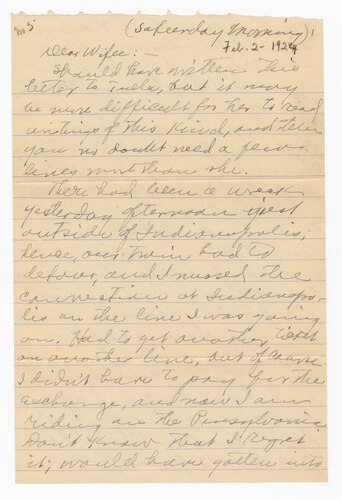 No 5
(Saturday Morning)!
Feb. 2- 1924
Dear Wifee: -
Should have written this
letter to Tulla, but it may
be more difficult for her to read
writings of this kind, and then
you no doubt need a few
lines more than she.
There had been a wreck
yesterday afternoon just
outside of Indianapolis,
hense, our train had to
detour, and I missed the
connection at Indianapo-
lis on the line I was going
on. Had to get another ticket
on another line, but of course
I didn't have to pay for the
exchange, and now I am
riding on the Pennsylvania
Don't know that I regret
it; would have gotten into